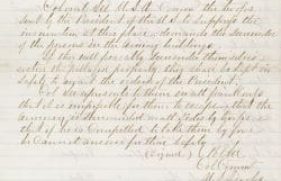 Colonel Lee U.S.A. Comm the troops
sent by the President of the U.S. to suppress the
insurrection at this place, demands the surrender
of the persons in the armory buildings.
If they will peaceably surrender themselves
restore the pillaged property, they shall be kept in
safety to await the orders of the President.
Col Lee represents to them in all frankness
that it is impossible for them to escape, that the
armory is surrounded on all sides by troops, &
that if he is compelled to take them by force
he cannot answer for their safety
(Signed) R E Lee
Col Comm
U.S. Troops